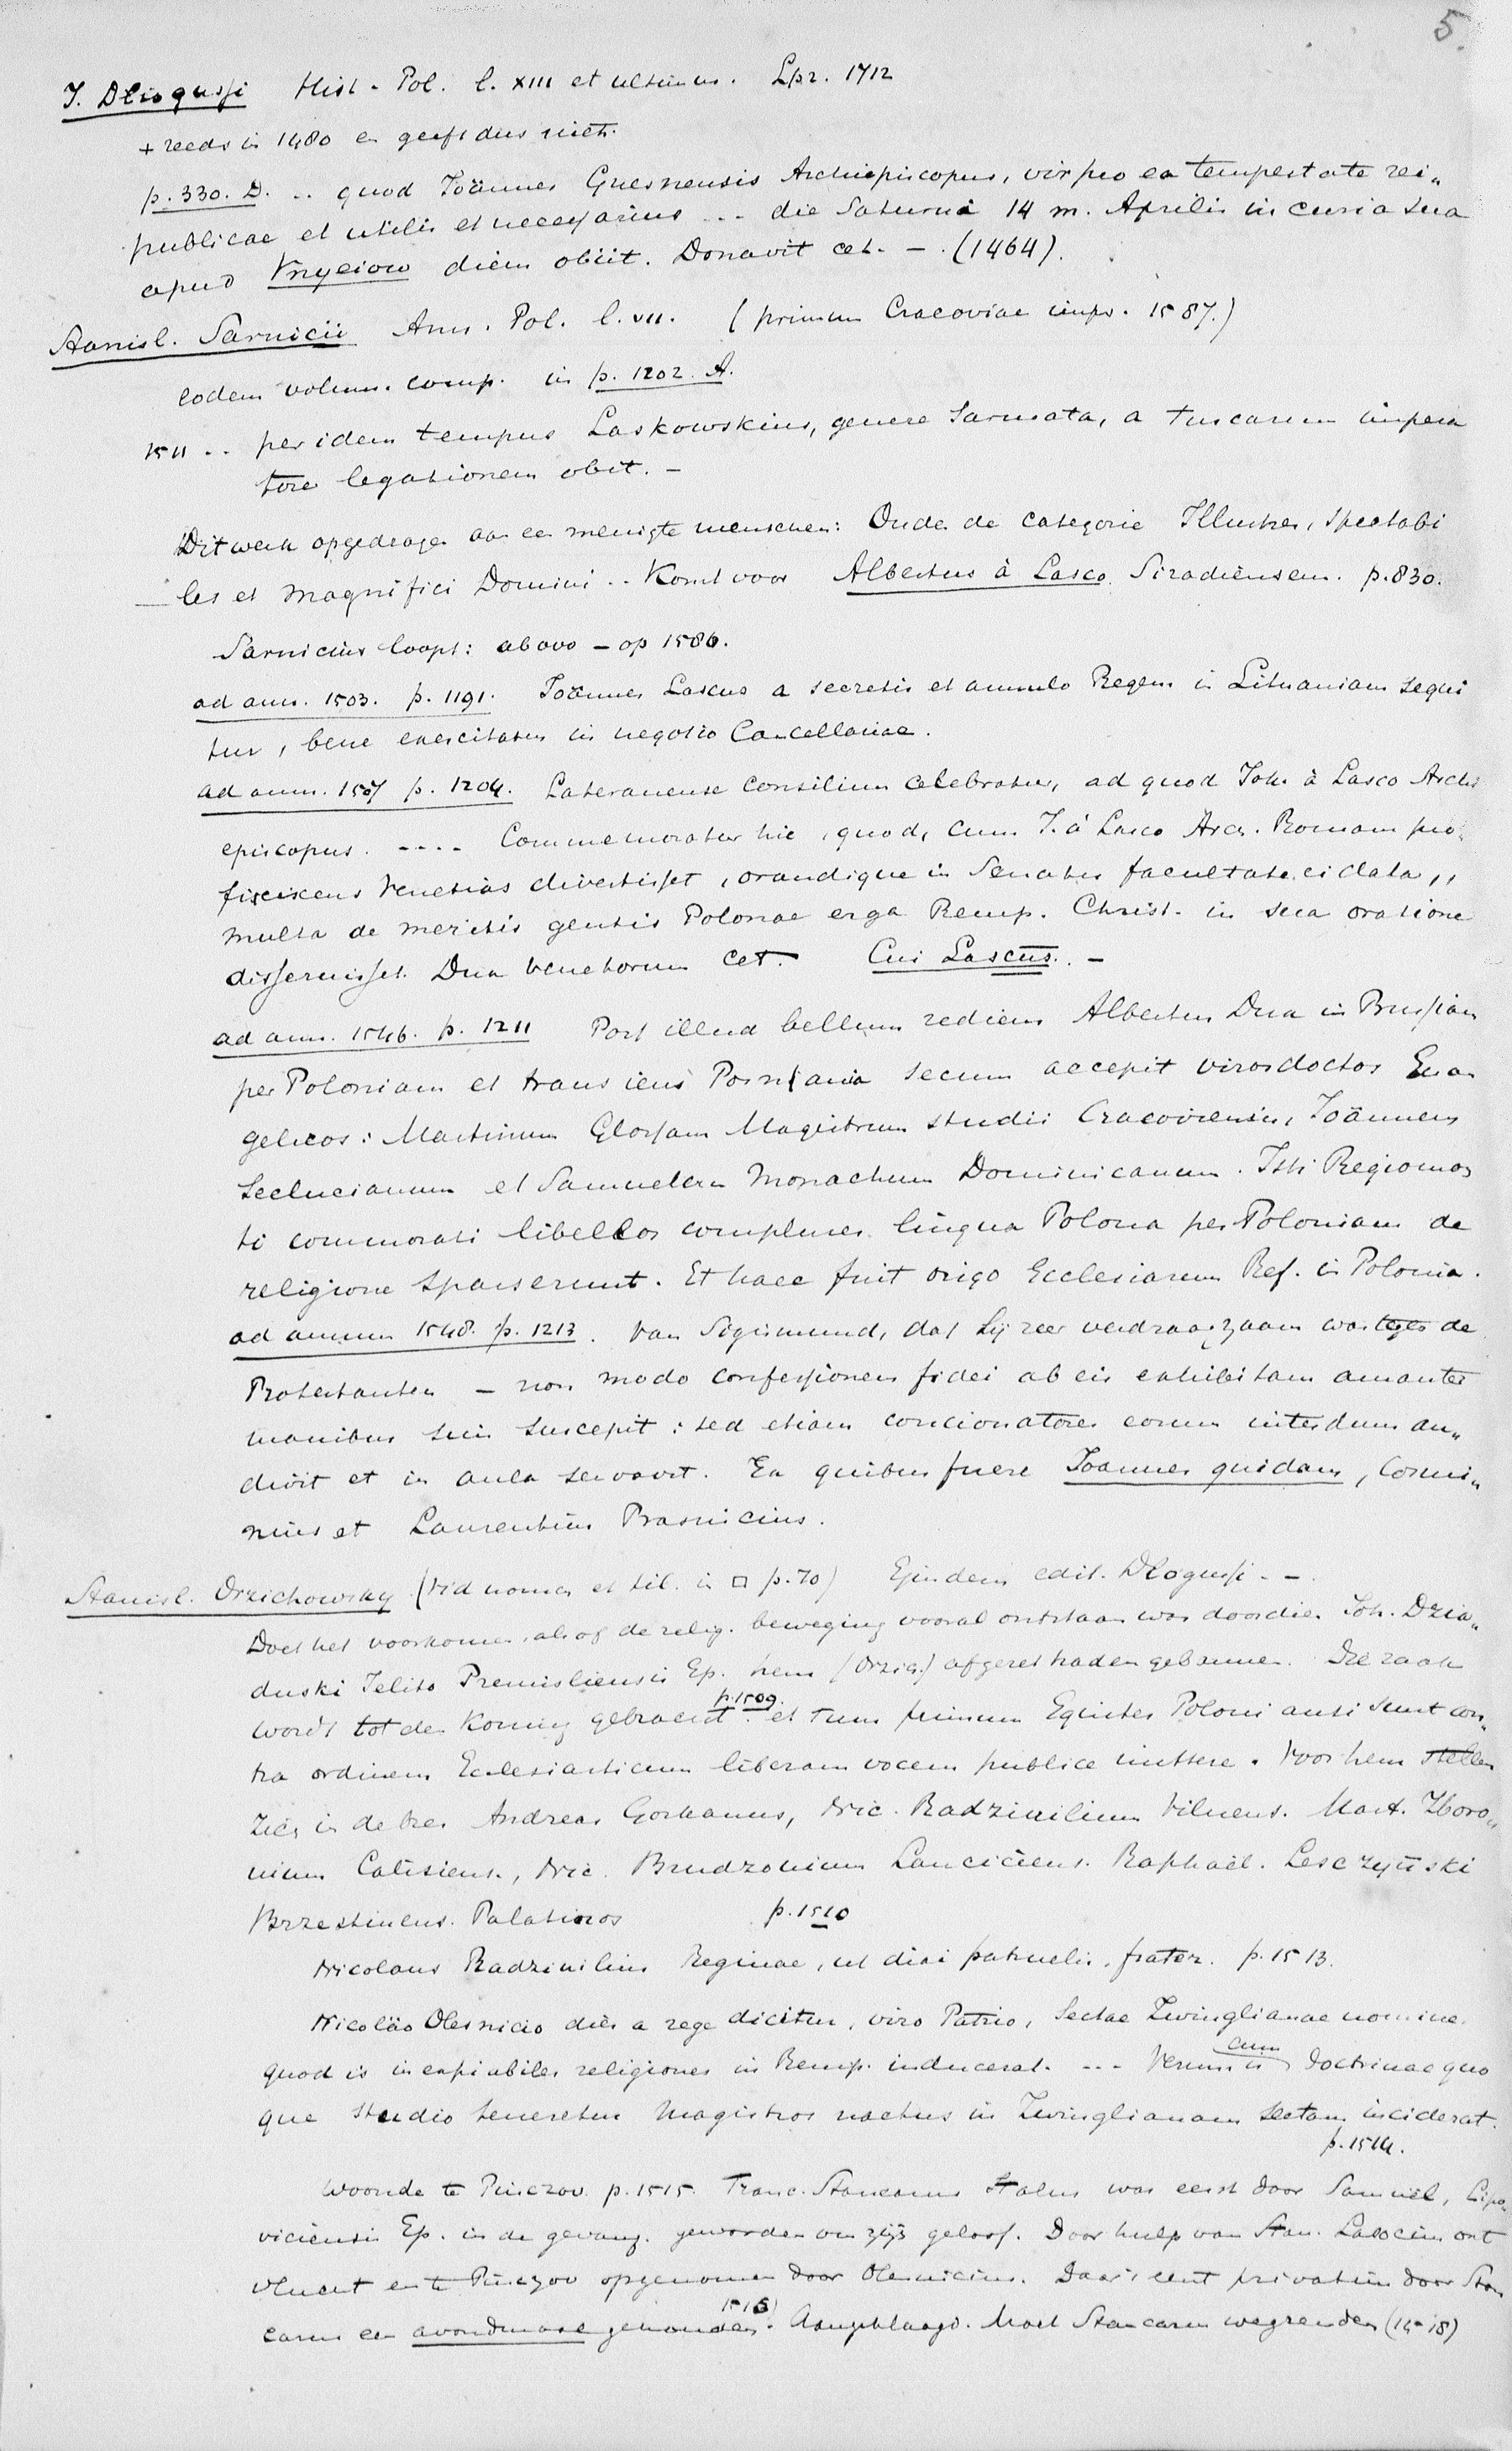 5.
J. Dlugussi Hist. Pol. l. XIII et ultimus. Lpz. 1712
+ reeds in 1480 en geeft dus niets.
p. 330. D. .. quod Joännes Gnesnensis Archiepiscopus, vir pro ea tempestate rei„
publicae et utilis et necessarius ... die Saturni 14 m. Aprilis in curia sua
apud Knyeiow diem obiit. Donavit cet. – . (1464).
Stanisl. Sarnicii Ann. Pol. l. VII. (primum Cracoviae impr. 1587.)
eodem volum. comp. in p. 1202. A.
1511 .. per idem tempus Laskowskius, genere Sarmata, a turcarum impera
tore legationem obit. –
Dit werk opgedragen aan een menigte menschen: Onder de categorie Illustres, Spectabi
les et magnifici Domini .. Komt voor Albertus à Lasco Siradiensem. p. 830.
Sarnicius loopt: ab ovo – op 1586.
ad ann. 1503. p. 1191. Joännes Lascus a secretis et annulo Regem in Lituaniam sequi
tur, bene exercitatus in negotio Cancellariae.
ad ann. 1507 p. 1204. Lateranense Consilium celebratur, ad quod Joh. à Lasco Archi
episcopus. .... Commemoratur hic, quod, cum J. à Lasco Arch. Romam pro„
ficiscens Venetias divertisset, orandique in Senatu facultate ei data,,
multa de meritis gentis Polonae erga Remp. Christ. in sua oratione
disseruisset. Dux Venetorum cet. Cui Lascus. –
ad ann. 1546. p. 1211 Post illud bellum rediens Albertus Dux in Prussiam
per Poloniam et transiens Posnania secum accepit viros doctos Euan
gelicos: Martinum Glossam Magistrum studii Cracoviensis, Joännem
Seclucianum et Samuelem Monachum Dominicanum. Isti Regiomon
ti commorati libellos complures lingua Polona per Poloniam de
religione sparserunt. Et haec fuit origo Ecclesiarum Ref. in Polonia.
ad annum 1548. p. 1213. Van Sigismund, dat hij zeer verdraagzaam was tegen de
Protestanten – non modo confessionem fidei ab eis exhibitam amanter
manibus suis suscepit: sed etiam concionatores eorum interdum au„
divit et in aula servavit. Ex quibus fuere Joannes quidam, Cosmi„
nius et Laurentius Prasnicius.
Stanisl. Orzichowsky (vid nomen et tit. in □ p. 70) Ejusdem edit. Dlogussi. –.
Doet het voorkomen, alsof de relig. beweging vooral ontstaan was doordien Joh. Dzia„
duski Jelito Premisliensis Ep. hem (Orzig.) afgezet hadden gebannen. De zaak
wordt tot den Koning gebracht. p. 1509. et tum primum Equites Poloni ausi sunt con„
tra ordinem Ecclesiasticum liberam vocem publice mittere. Voor hem stellen
zich in de bres Andreas Gorkanus, Nic. Radzivilium Vilnens. Mart. Zboro„
vium Calisiens., Nic. Brudzovium Lanciciens. Raphaël. Lesczynski
Brzestinens. Palatinos p. 1510
Nicolaus Radzivilius Reginae, ut dixi patruelis frater. p. 1513.
Nicoläo Olesnicio dies a rege dicitur, viro Patrio, Sectae Zwinglianae nomine.
quod is inexpiabiles religiones in Remp. induceret. ... Verum is cum doctrinae quo
que studio teneretur Magistros nactus in Zwinglianam sectam inciderat.
p. 1514.
Woonde te Pinczov. p. 1515. Franc. Stancarus Italus was eerst door Samuel,
viciensis Ep. in de gevang. geworpen om zijn geloof. Door hulp van Stan. Lasocius ont
vlucht en te Pinczov opgenomen door Olesnicius. Daar is eerst privatim door Stan
carus een avondmaal gehouden. 1516) Aangeklaagd. Moet Stancarus wegzenden (15-18)